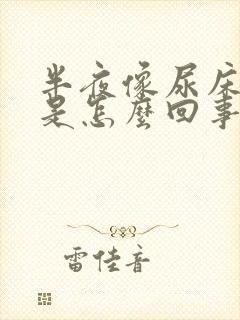 半夜像尿床
是怎麼回事
雷佳音